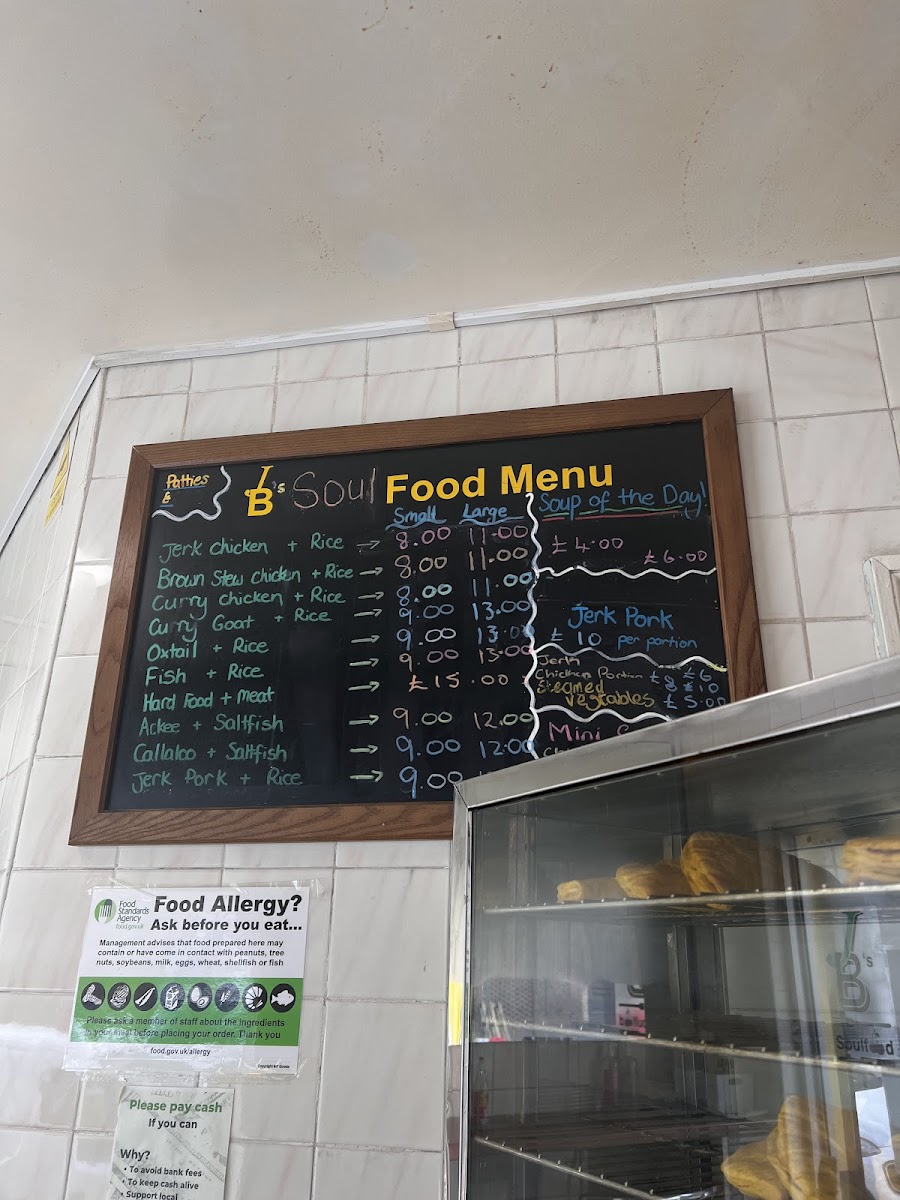 Patties
&
JB's Soul Food Menu
Small Large
Jerk chicken + Rice → 8.00 11.00
Brown Stew chicken + Rice → 8.00 11.00
Curry chicken + Rice → 8.00 11.00
Curry Goat + Rice → 9.00 13.00
Oxtail + Rice → 9.00 13.00
Fish + Rice → 9.00 13.00
Hard Food + meat → £15.00
Ackee + Saltfish → 9.00 12.00
Callaloo + Saltfish → 9.00 12:00
Jerk Pork + Rice → 9.00
Soup of the Day!
£4.00
£6.00
Jerk Pork
£10 per portion
Jerk
Chicken Portion
steamed
vegetables £5.00
Mini
Food
Standards
Agency
food.gov.uk
Food Allergy?
Ask before you eat...
Management advises that food prepared here may
contain or have come in contact with peanuts, tree
nuts, soybeans, milk, eggs, wheat, shellfish or fish
Please ask a member of staff about the ingredients
in your meal before placing your order. Thank you
food.gov.uk/allergy
Please pay cash
If you can
Why?
• To avoid bank fees
• To keep cash alive
• Support local
JB's
Soulfood